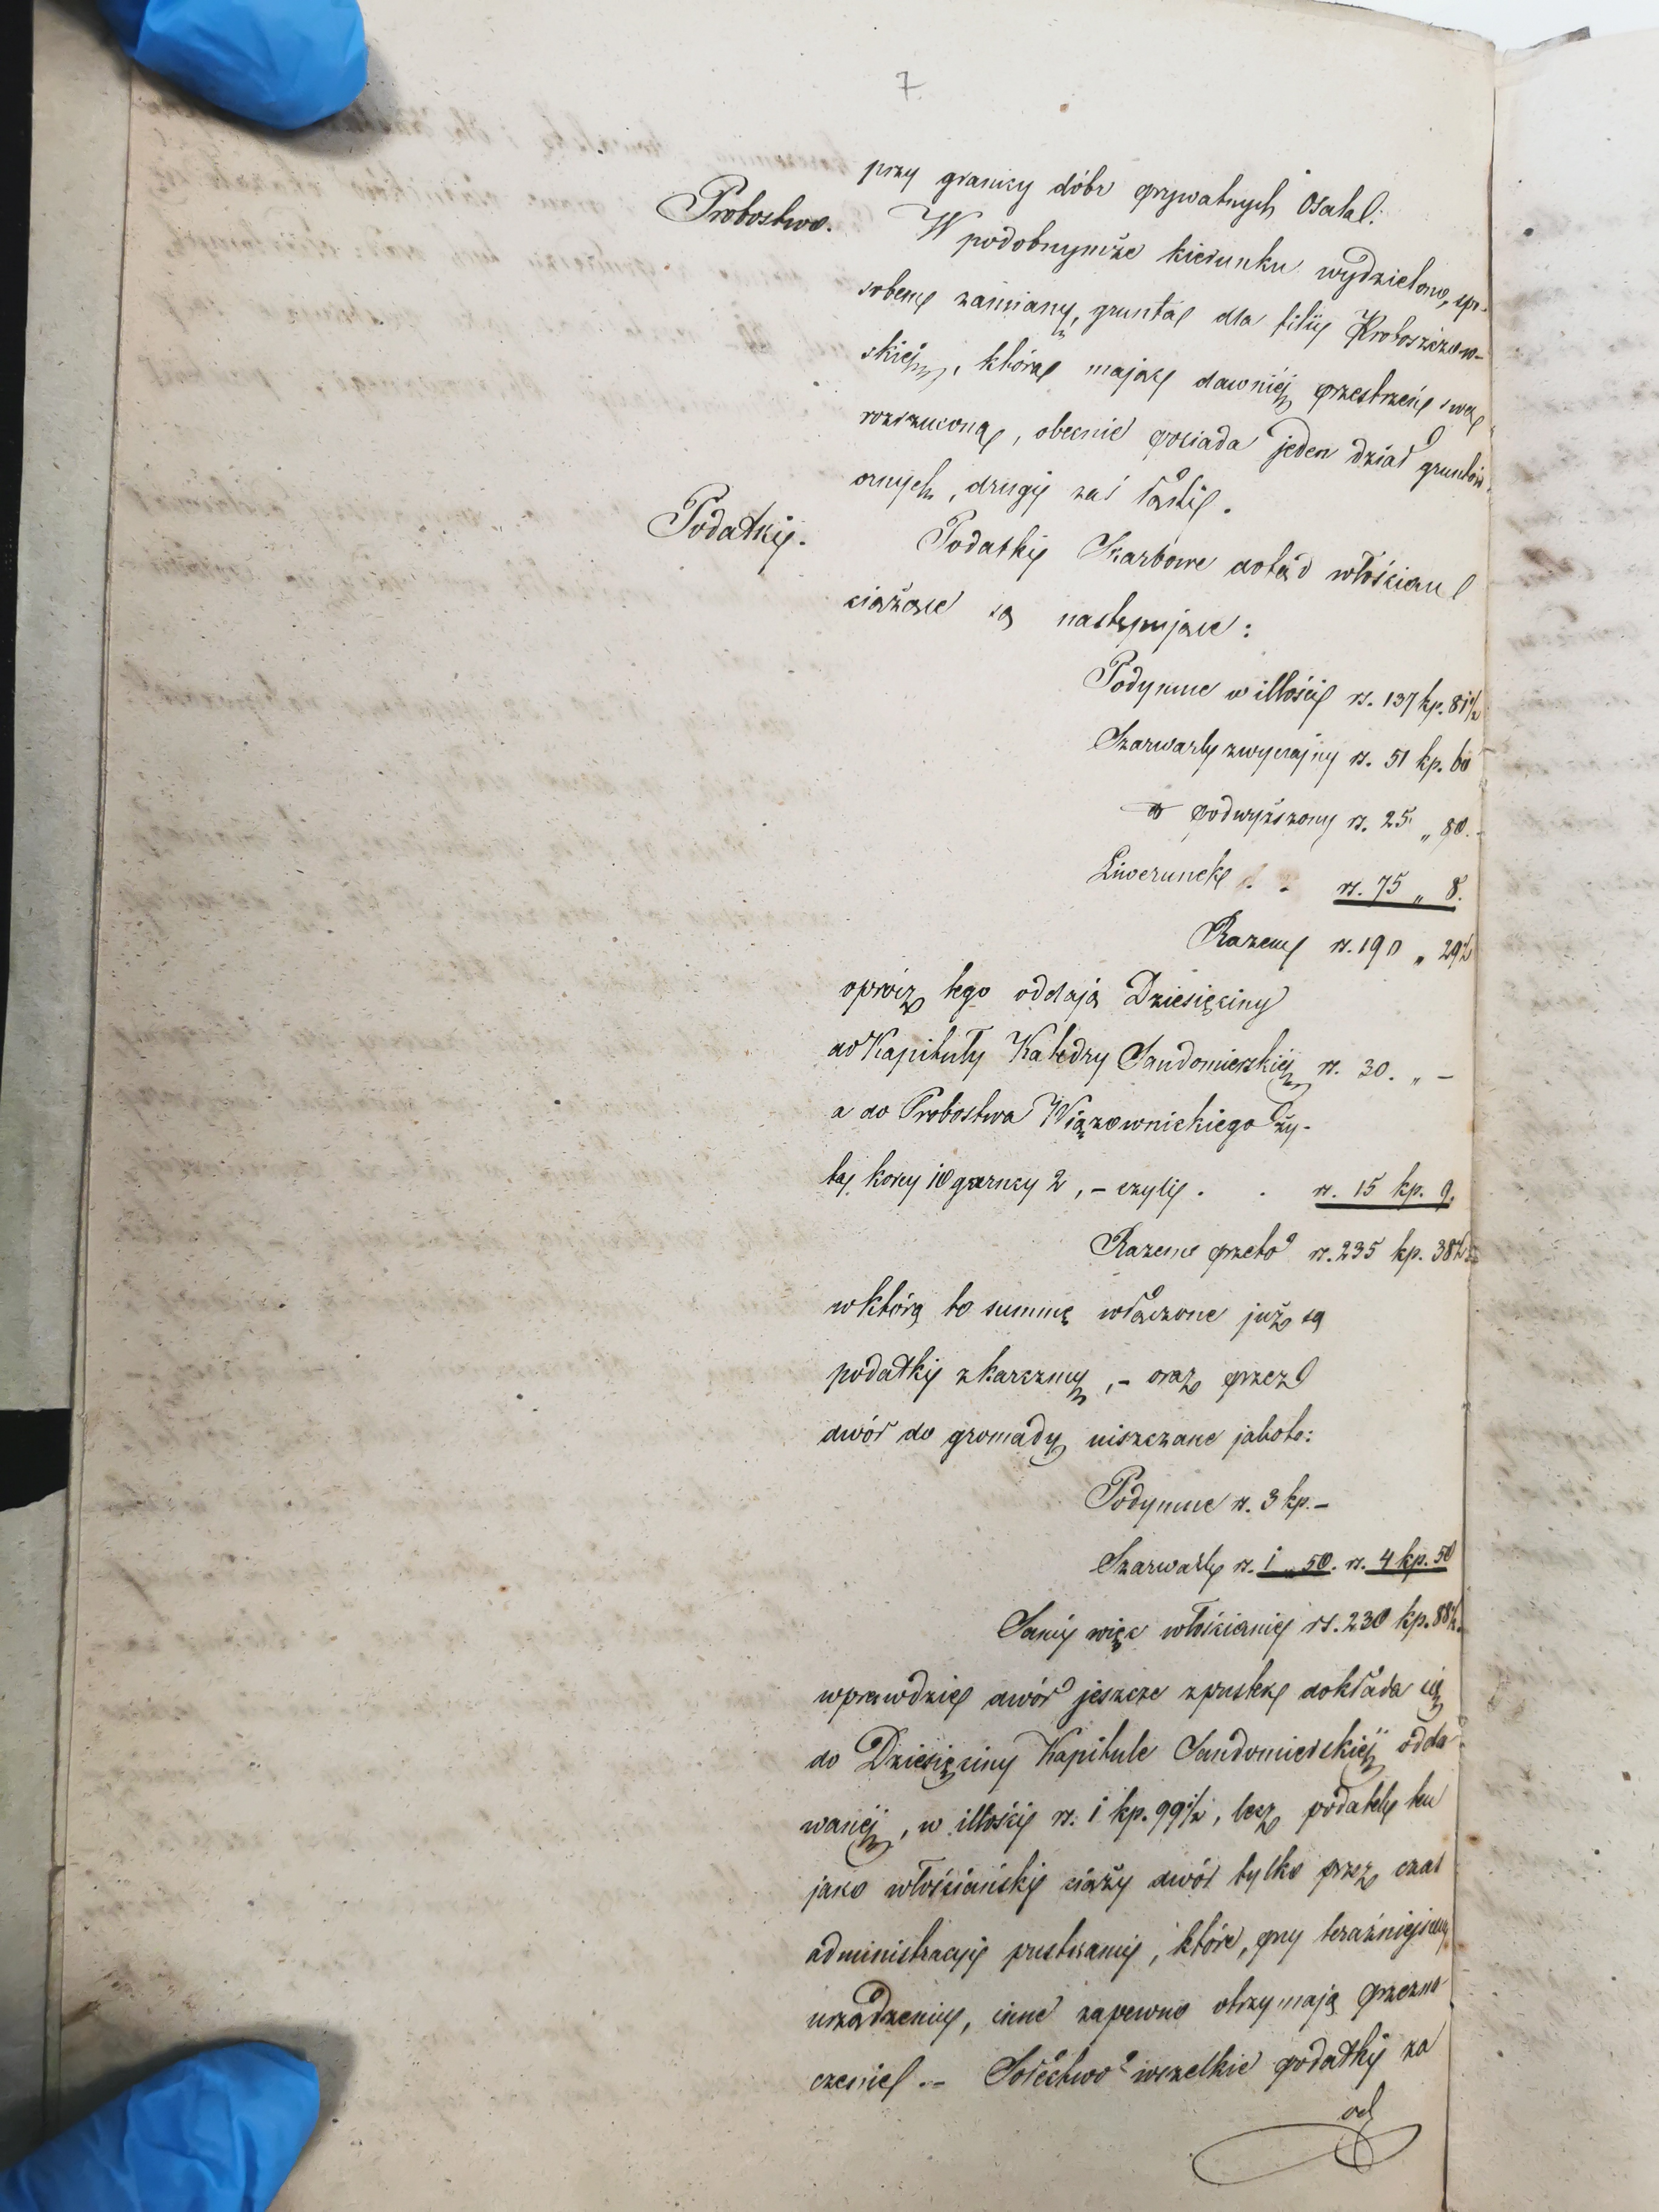 7.
przy granicy dóbr prywatnych Osala.
Probostwo.
W podobnymże kierunku wydzielono, spo-
sobem zamiany, grunta dla filii Kroboszczow-
skiej, która mając dawniej przestrzeń swą
rozrzuconą, obecnie posiada jeden dział gruntów
ornych, drugi zaś łąki.
Podatki.
Podatki Skarbowe dotąd włościan
ciążące są następujące:
Podymne w illości rs. 137 kp. 81½
Szarwark zwyczajny rs. 51 kp. 60
podwyższony rs. 25 „ 80.
Liwerunek . . rs. 75 „ 8.
Razem rs. 190 „ 29½
oprócz tego oddają Dziesięciny
do Kapituły Katedry Sandomierskiej rs. 30. „ –
a do Probostwa Wiązownickiego ży-
ta korcy 10 garncy 2, – czyli . . rs. 15 kp. 9.
Razem przeto rs. 235 kp. 38½
w którą to summę włączone już są
podatki z karczmy, – oraz przez
dwór do gromady uiszczane jakoto:
Podymne rs. 3 kp. –
Szarwark rs. 1 „ 50. rs. 4 kp. 50
Sami więc włościanie rs. 230 kp. 88½.
wprawdzie dwór jeszcze z pustek dokłada się
do Dziesięciny Kapitule Sandomierskiej odda-
wanej, w illości rs. 1 kp. 99½, lecz podatek ten
jako włościański ciąży dwór tylko przez czas
administracyi pustkami, które, przy teraźniejszem
urządzeniu, inne zapewne otrzymają przezna-
czenie. – Sołectwo wszelkie podatki za
od